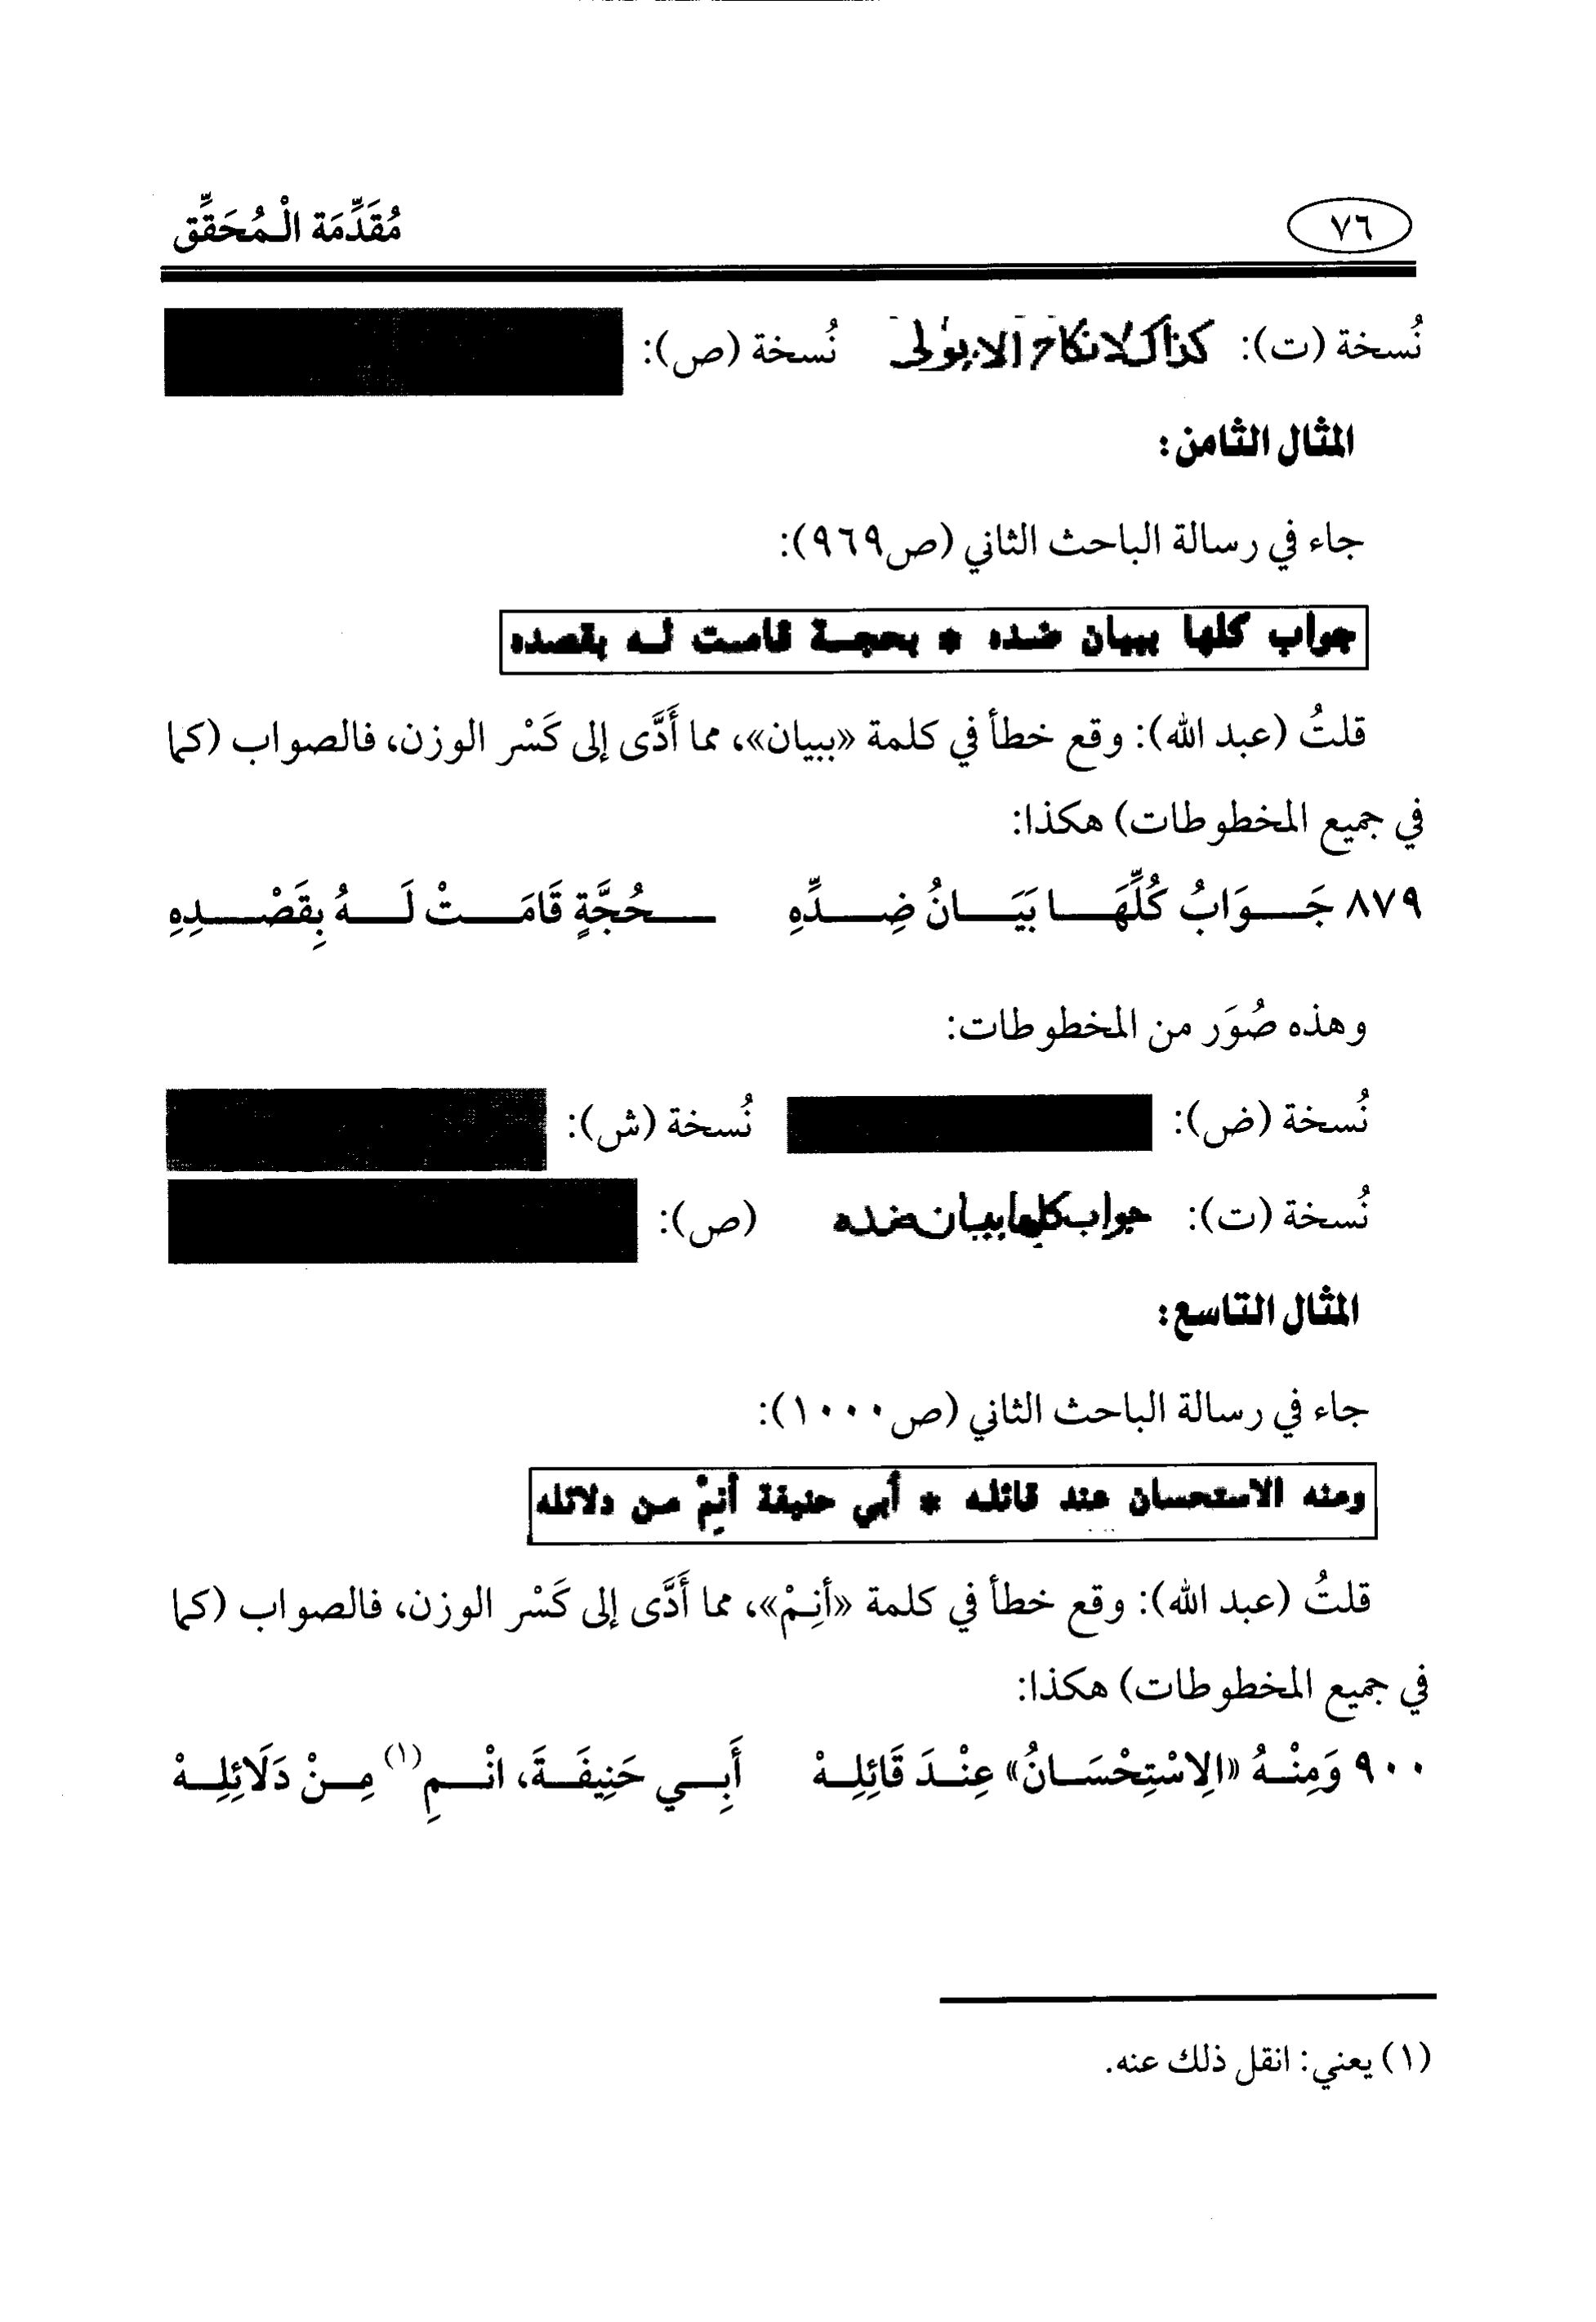 ٧٦ مُقَدِّمَة الْمُحَقِّق
نُسخة (ت): كذاك لا نكاح الا بولى نُسخة (ص):
المثال الثامن:
جاء في رسالة الباحث الثاني (ص٩٦٩):
جواب كلها ببيان ضده * بحجة قامت له بقصده
قلتُ (عبد الله): وقع خطأ في كلمة «ببيان»، مما أَدَّى إلى كَسْر الوزن، فالصواب (كما
في جميع المخطوطات) هكذا:
٨٧٩ جَوَابُ كُلِّهَا بَيَانُ ضِدِّهِ حُجَّةٍ قَامَتْ لَهُ بِقَصْدِهِ
وهذه صُوَر من المخطوطات:
نُسخة (ض): نُسخة (ش):
نُسخة (ت): جواب كلها بيان ضده (ص):
المثال التاسع:
جاء في رسالة الباحث الثاني (ص١٠٠٠):
ومنه الاستحسان عند قائله * أبي حنيفة أنِمْ من دلائله
قلتُ (عبد الله): وقع خطأ في كلمة «أنِمْ»، مما أَدَّى إلى كَسْر الوزن، فالصواب (كما
في جميع المخطوطات) هكذا:
٩٠٠ وَمِنْهُ «الِاسْتِحْسَانُ» عِنْدَ قَائِلِهْ أَبِي حَنِيفَةَ، انْمِ(١) مِنْ دَلَائِلِهْ
(١) يعني: انقل ذلك عنه.